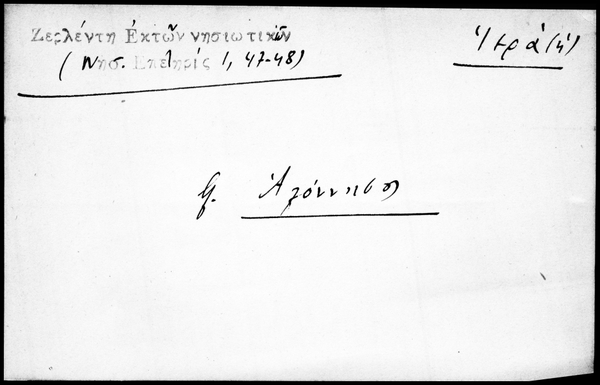 Ζερλέντη Ἐκτῶν νησιωτικῶν
(Νησ. Ἐπετηρίς 1, 47-48)
βλ. Ἁλόννησο